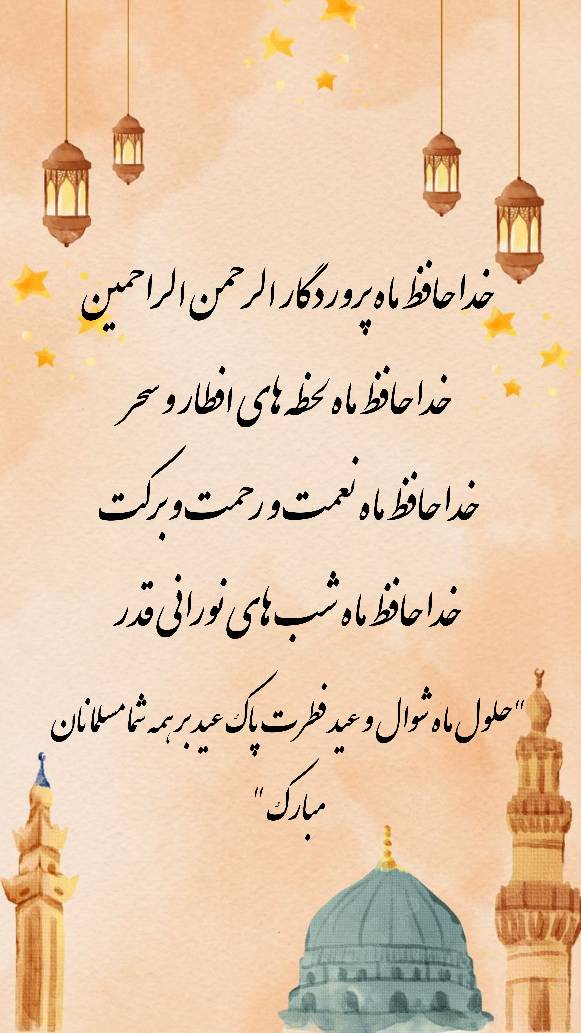 خداحافظ ماه پروردگار الرحمن الراحمین
خداحافظ ماه لحظه های افطار و سحر
خداحافظ ماه نعمت و رحمت و برکت
خداحافظ ماه شب های نورانی قدر
"حلول ماه شوال و عید فطرت پاک عید بر همه شما مسلمانان
مبارک"